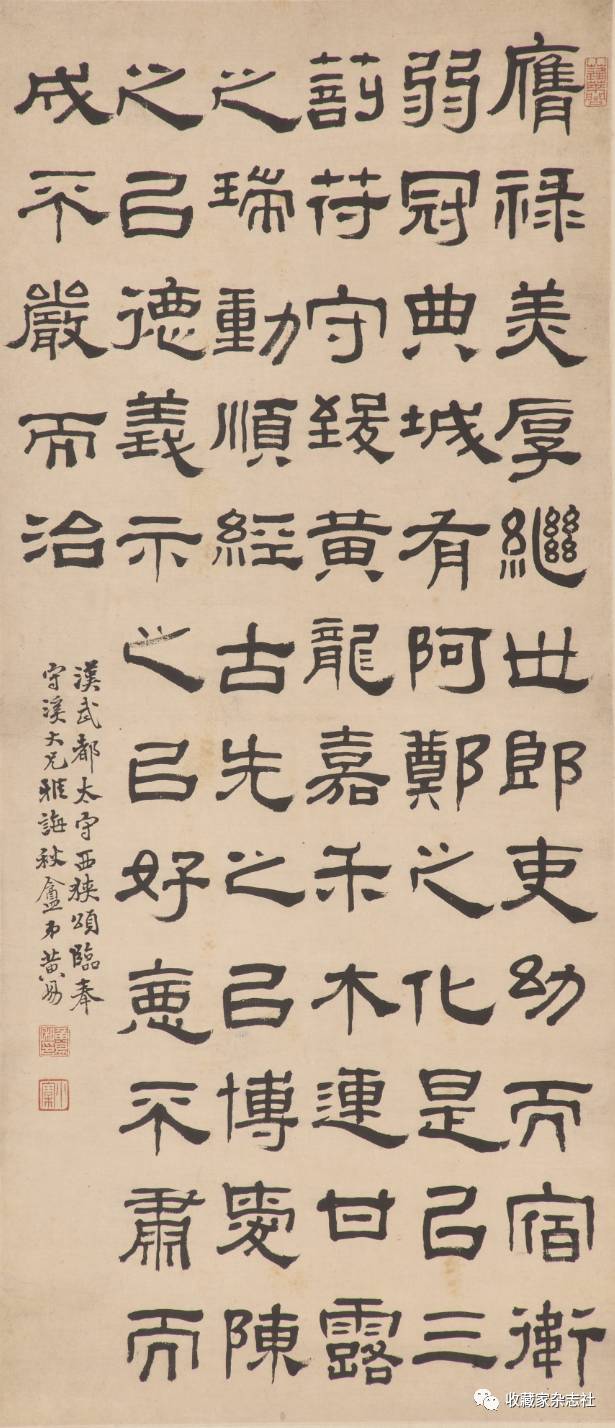 膺祿美厚繼世郎吏幼而宿衛
弱冠典城有阿鄭之化是㠯三
剖苻守致黃龍嘉禾木連甘露
之瑞動順經古先之㠯博愛陳
之㠯德義示之㠯好惡不肅而
成不嚴而治
漢武都太守西狹頌臨奉
守溪大兄雅誨秋盦弟黃易
收藏家杂志社